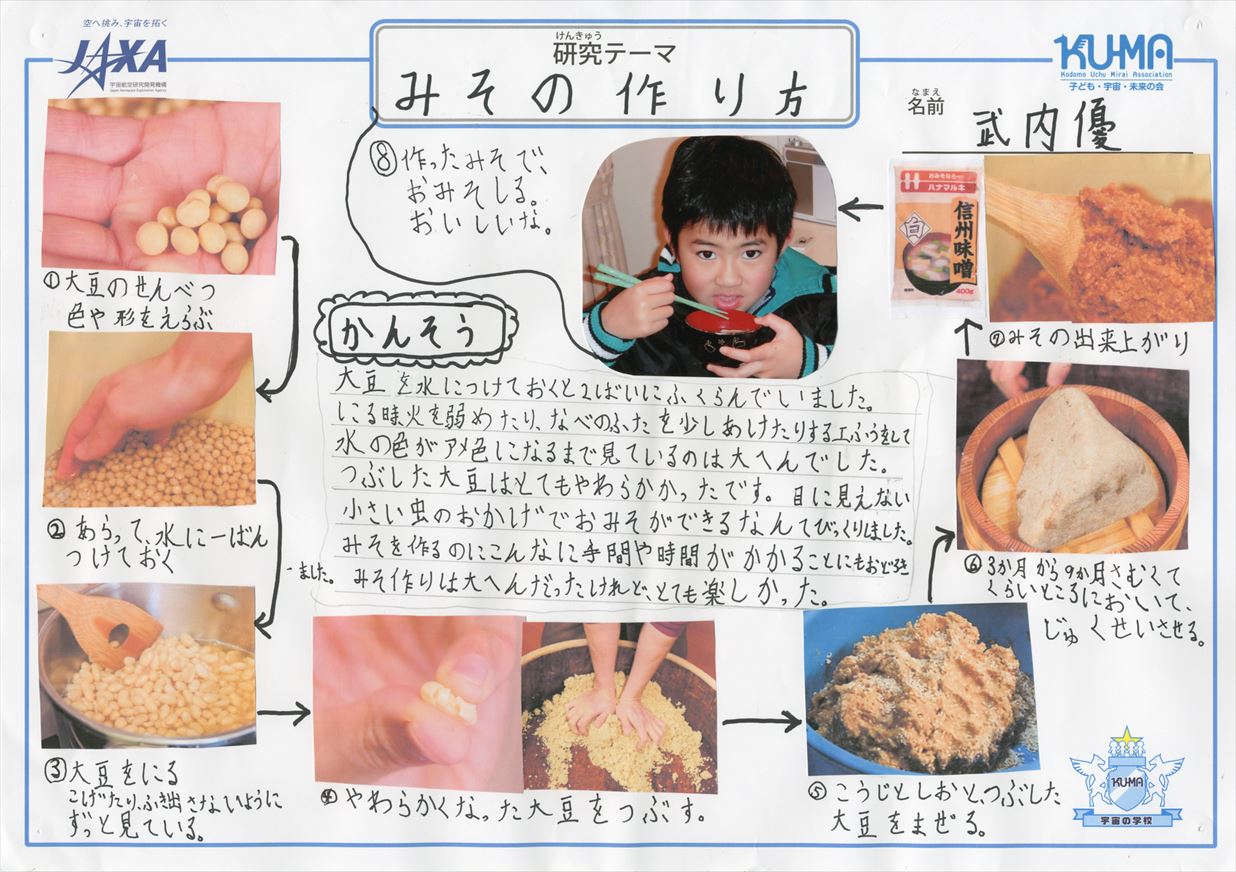 空へ挑み、宇宙を拓く
JAXA
宇宙航空研究開発機構
Japan Aerospace Exploration Agency
けんきゅう
研究テーマ
みその作り方
KU-MA
Kodomo Uchu Mirai Association
子ども・宇宙・未来の会
なまえ
名前
武内優
①大豆のせんべつ
色や形をえらぶ
②あらって、水に一ばん
つけておく
③大豆をにる
こげたり、ふき出さないように
ずっと見ている。
④やわらかくなった大豆をつぶす。
⑤こうじとしおと、つぶした
大豆をまぜる。
⑥3か月から9か月さむくて
くらいところにおいて、
じゅくせいさせる。
⑦みその出来上がり
ハナマルキ
信州味噌
白
400g
⑧作ったみそで、
おみそしる。
おいしいな。
かんそう
大豆を水につけておくと2ばいにふくらんでいました。
にる時火を弱めたり、なべのふたを少しあけたりする工ふうをして
水の色がアメ色になるまで見ているのは大へんでした。
つぶした大豆はとてもやわらかかったです。目に見えない
小さい虫のおかげでおみそができるなんてびっくりしました。
みそを作るのにこんなに手間や時間がかかることにもおどろき
ました。みそ作りは大へんだったけれど、とても楽しかった。
KUMA
宇宙の学校